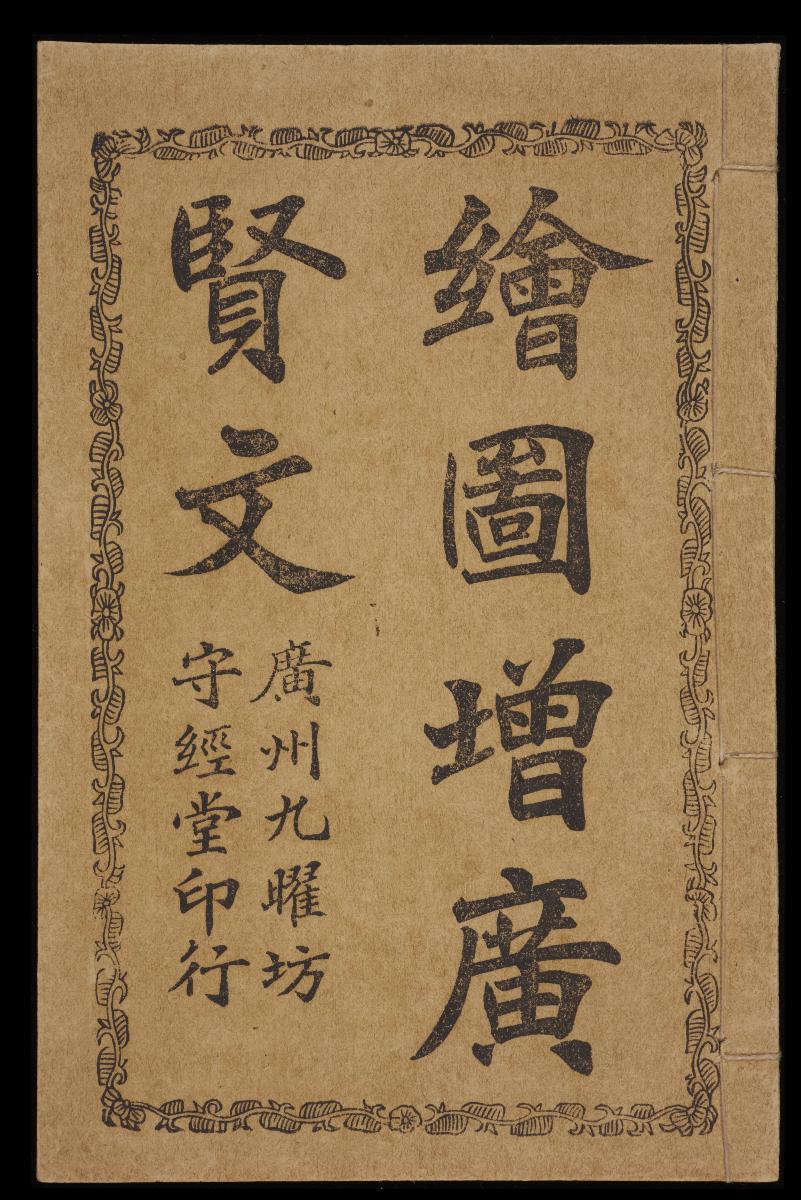 繪圖增廣
賢文
廣州九曜坊
守經堂印行